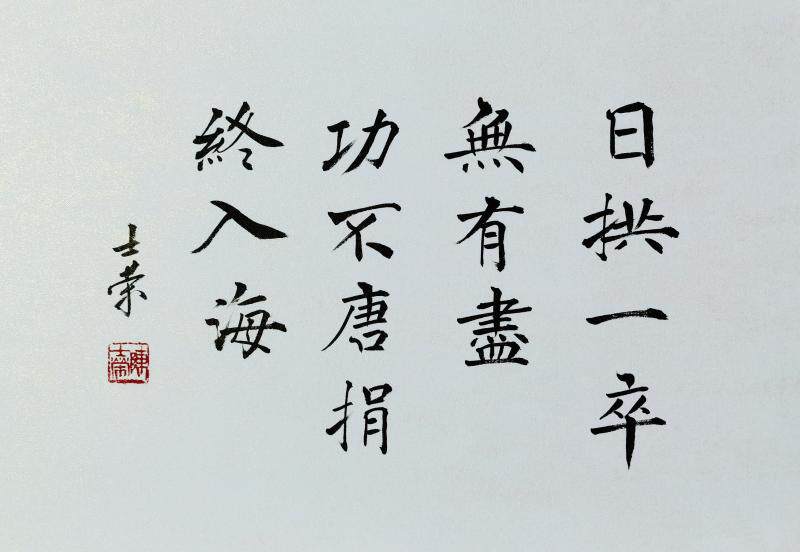 日拱一卒
無有盡
功不唐捐
終入海
士荣
陳士榮